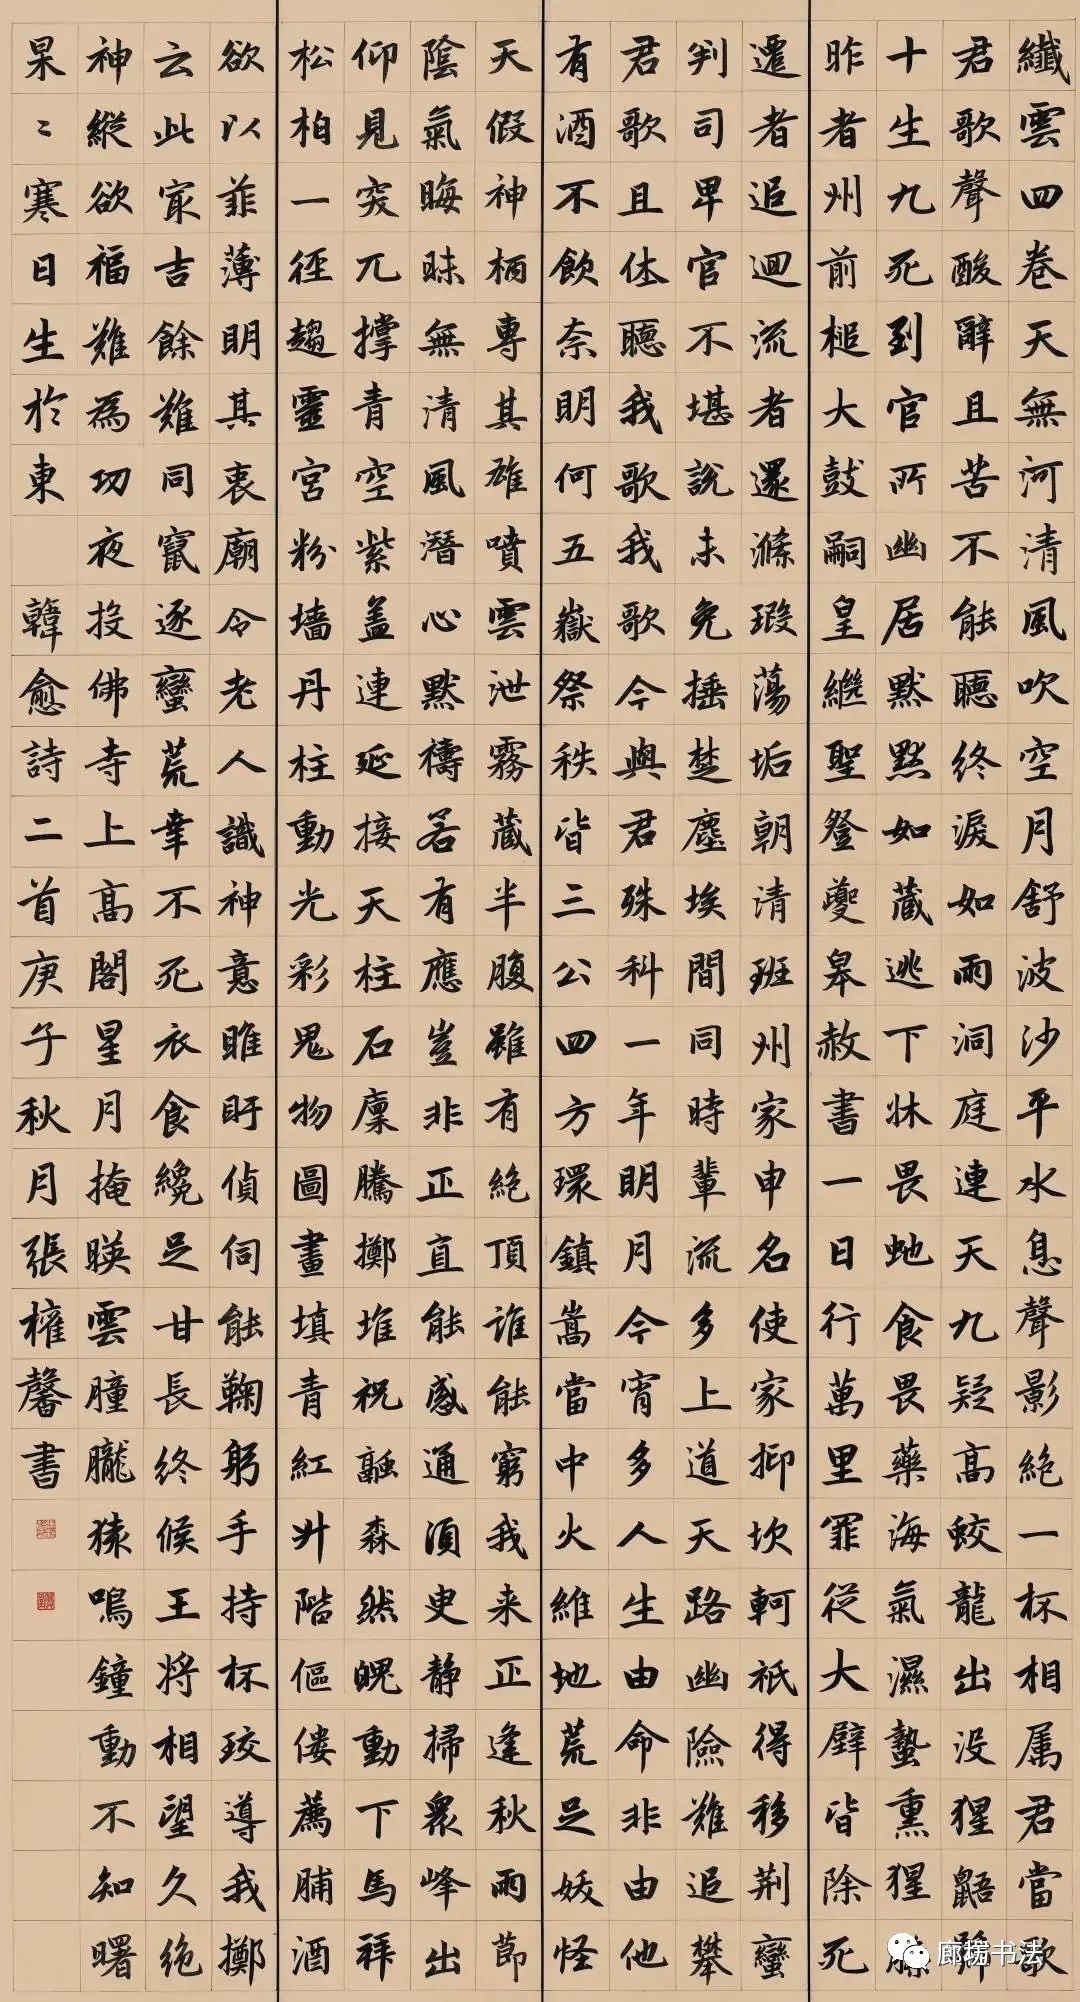 纖雲四卷天無河清風吹空月舒波沙平水息聲影絕一杯相属君當歌
君歌聲酸辭且苦不能聽終淚如雨洞庭連天九疑高蛟龍出没猩鼯號
十生九死到官所幽居默默如藏逃下牀畏蛇食畏藥海氣濕蟄熏猩臊
昨者州前槌大鼓嗣皇繼聖登夔皋赦書一日行萬里罪從大辟皆除死
遷者追迴流者還滌瑕蕩垢朝清班州家申名使家抑坎軻衹得移荆蠻
判司卑官不堪說未免捶楚塵埃間同時輩流多上道天路幽險難追攀
君歌且休聽我歌我歌今與君殊科一年明月今宵多人生由命非由他
有酒不飲奈明何五嶽祭秩皆三公四方環鎮嵩當中火維地荒足妖怪
天假神柄專其雄噴雲泄霧藏半腹雖有絕頂誰能窮我来正逢秋雨節
陰氣晦昧無清風潛心默禱若有應豈非正直能感通須臾静掃衆峰出
仰見突兀撑青空紫蓋連延接天柱石廪騰擲堆祝融森然魄動下馬拜
松柏一徑趨靈宮粉墻丹柱動光彩鬼物圖畫填青紅升階傴僂薦脯酒
欲以菲薄明其衷廟令老人識神意睢盱偵伺能鞠躬手持杯珓導我擲
云此最吉餘難同竄逐蠻荒幸不死衣食纔足甘長終候王將相望久絶
神縱欲福難為功夜投佛寺上高閣星月掩暎雲朣朧猿鳴鐘動不知曙
杲〻寒日生於東 韓愈詩二首庚子秋月張權馨書
廊坊书法